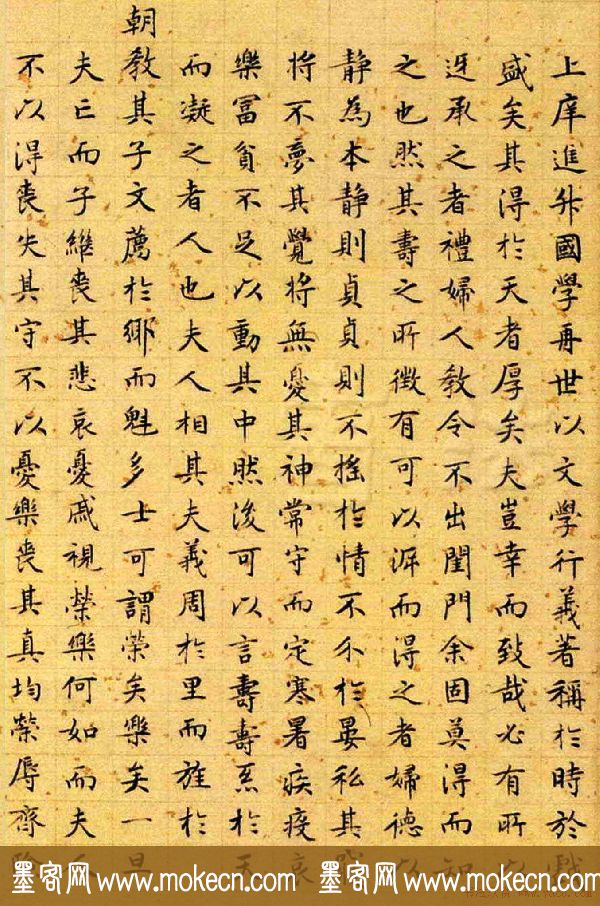 上庠進升國學再世以文學行義著稱於時於戲
盛矣其得於天者厚矣夫豈幸而致哉必有所以
迓承之者禮婦人教令不出閨門余固莫得而知
之也然其壽之所徵有可以泝而得之者婦德以
静為本静則貞貞則不搖於情不介於晏私其
将不夢其覺将無憂其神常守而定寒暑疾疫哀
樂冨貧不足以動其中然後可以言壽壽系於天
而凝之者人也夫人相其夫義周於里而旌於
朝教其子文薦於鄉而魁多士可謂榮矣樂矣一旦
夫亡而子維喪其悲哀憂戚視榮樂何如而夫人
不以得喪失其守不以憂樂喪其真均榮辱齊
墨客网 www.mokecn.com 墨客网 www.mokecn.com